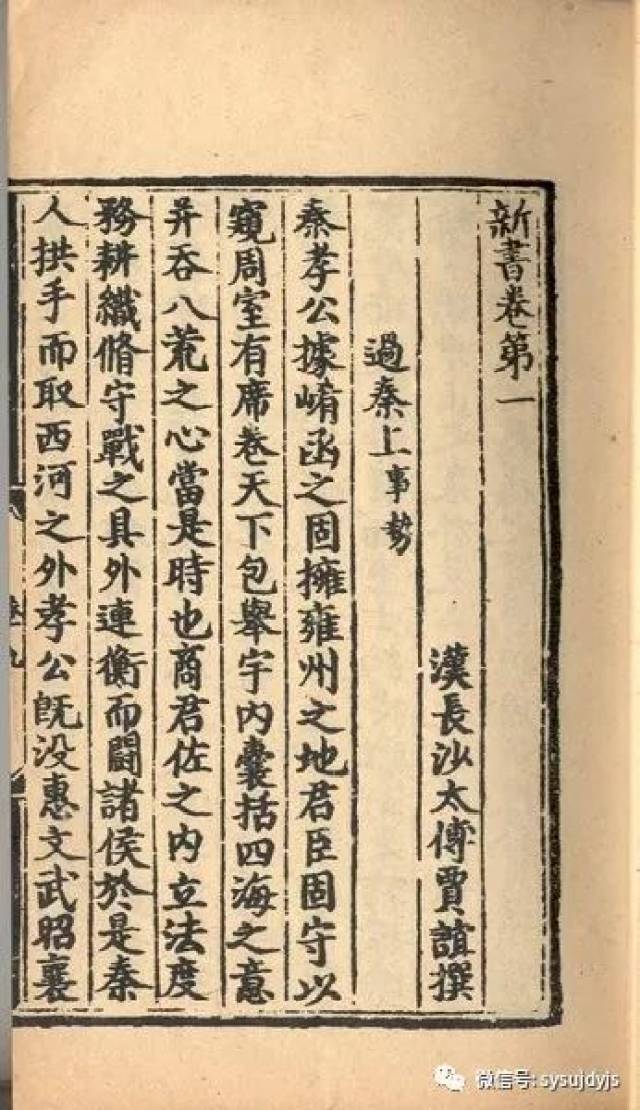 新書卷第一
漢長沙太傅賈誼撰
過秦上事勢
秦孝公據崤函之固擁雍州之地君臣固守以
窺周室有席卷天下包舉宇內囊括四海之意
并吞八荒之心當是時也商君佐之內立法度
務耕織脩守戰之具外連衡而鬭諸侯於是秦
人拱手而取西河之外孝公旣没惠文武昭襄
微信号: sysujdyjs